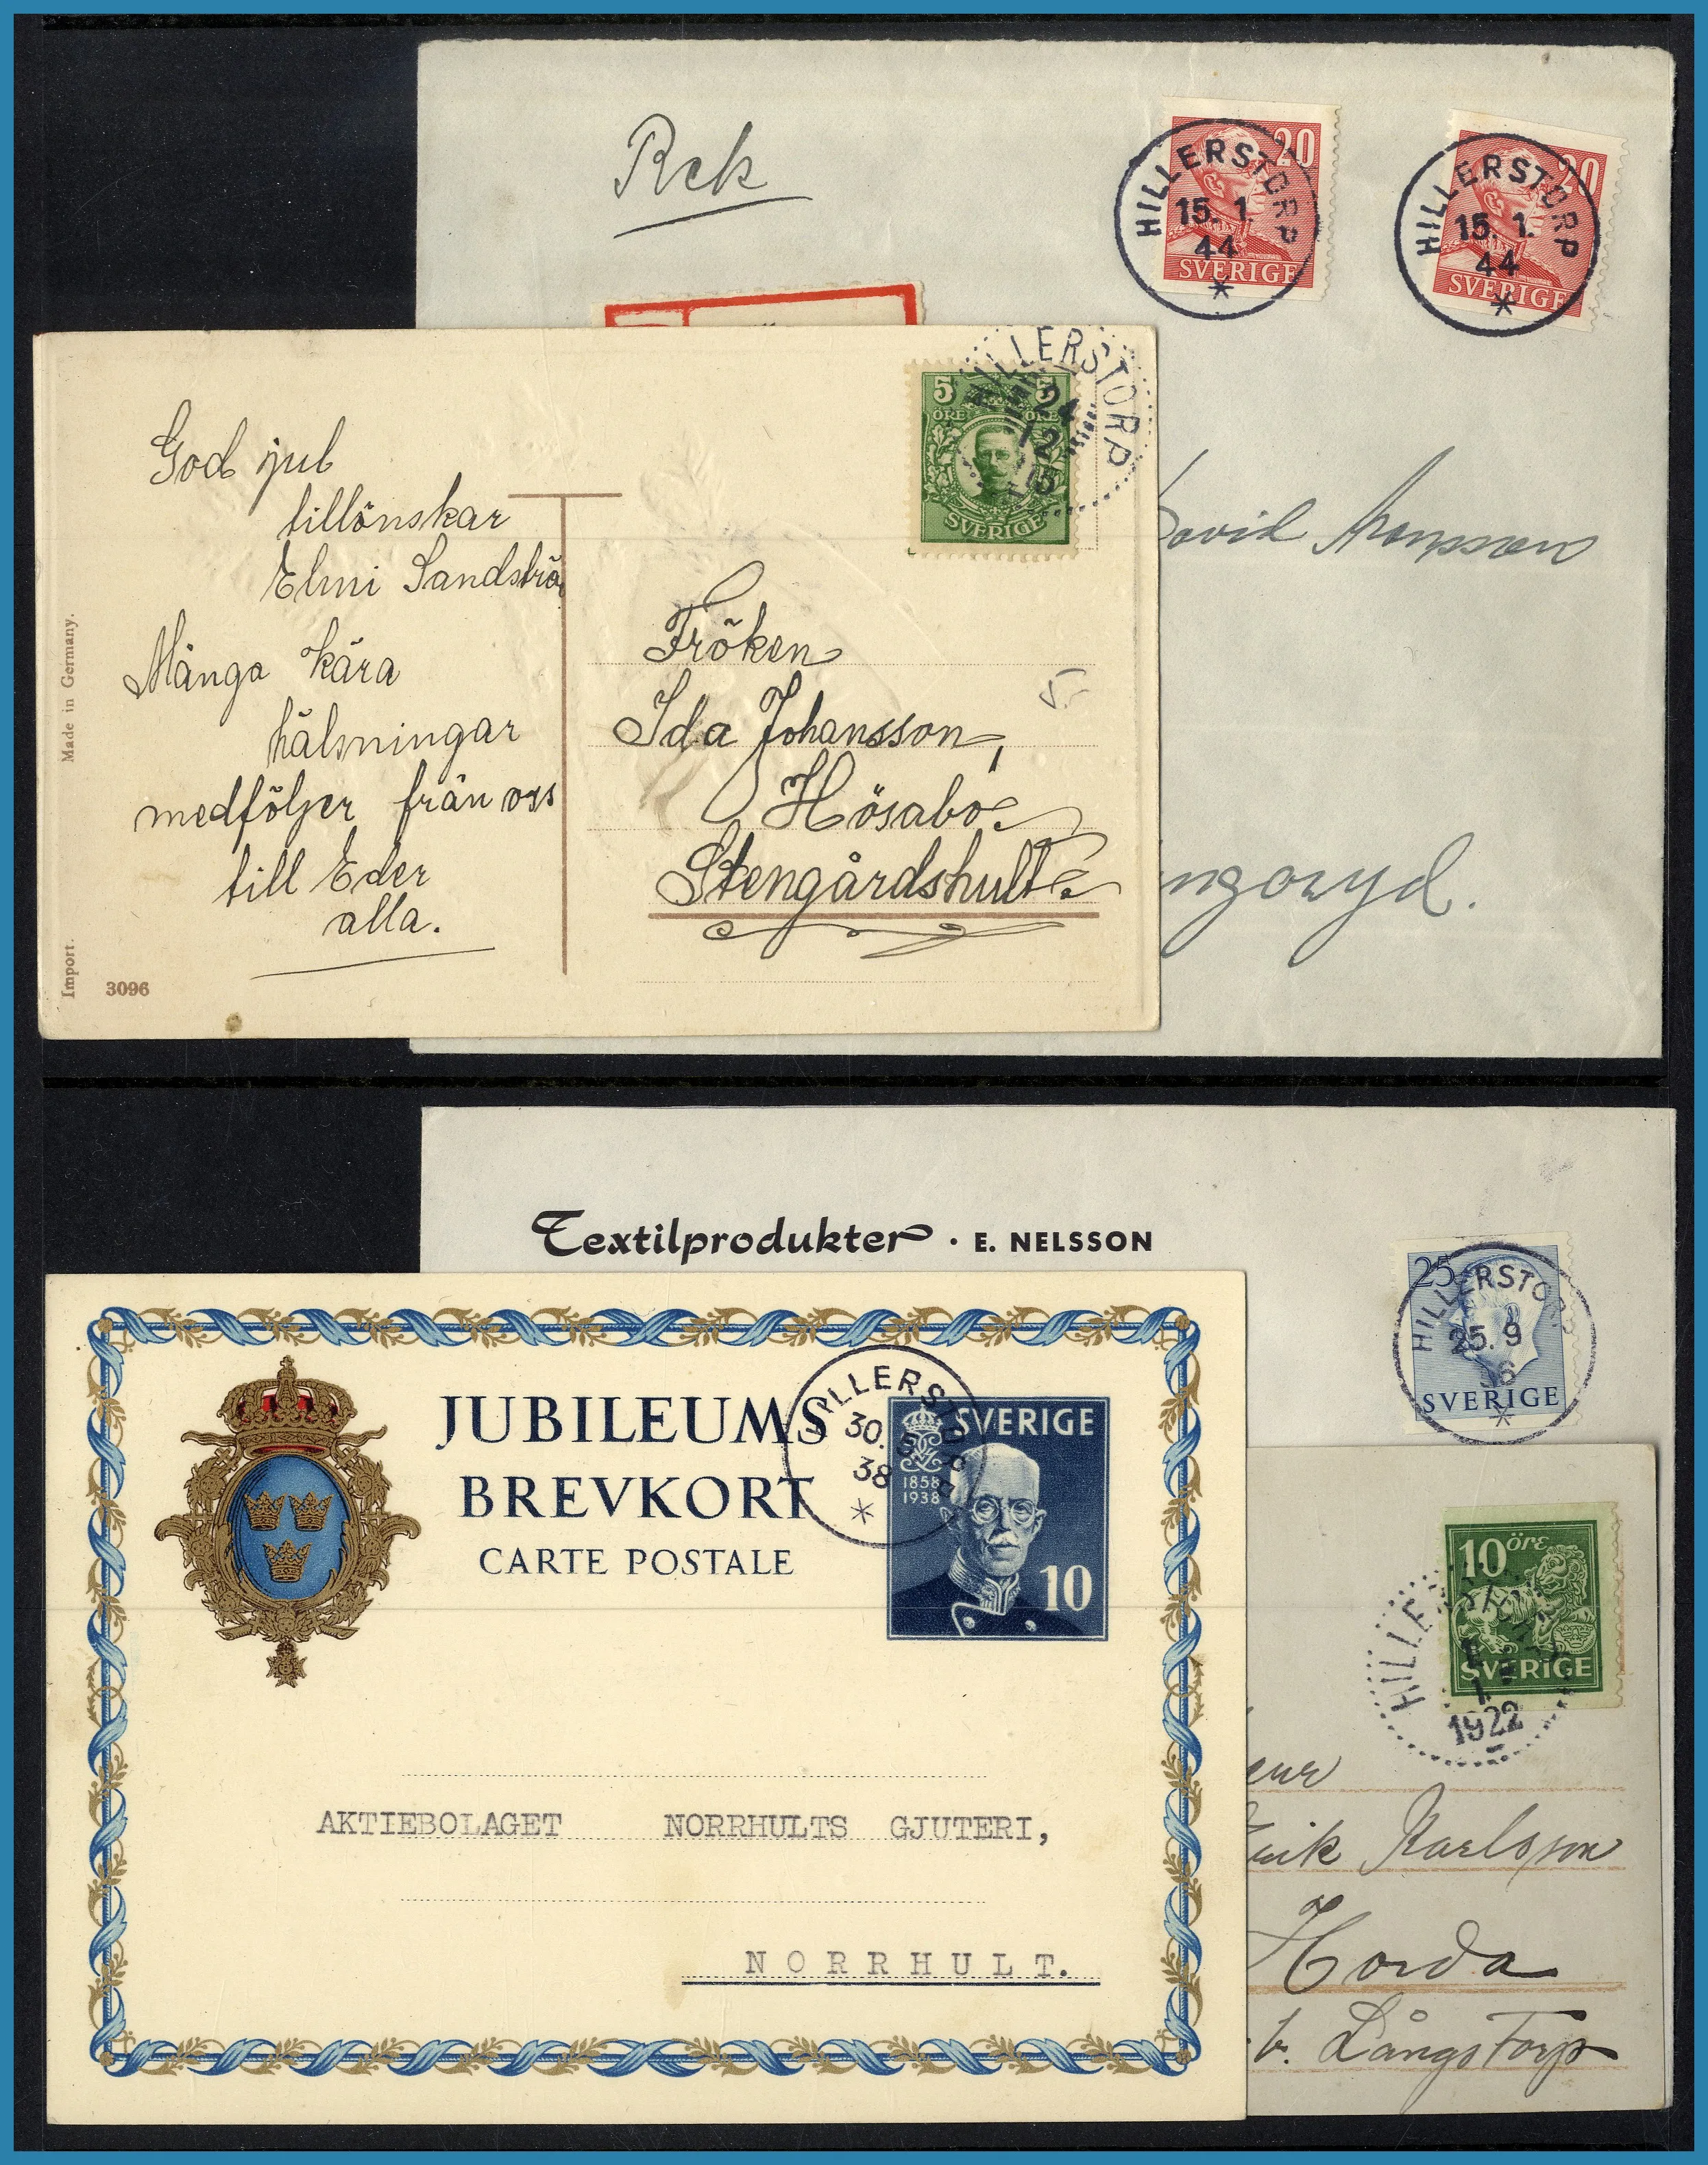 Rek
20
SVERIGE
HILLERSTORP
15. 1.
44
20
SVERIGE
HILLERSTORP
15. 1.
44
David Aronsson
5 5
ÖRE ÖRE
SVERIGE
HILLERSTORP
24
12
15
God jul
tillönskar
Elmi
Många kära
hälsningar
medföljer från oss
till Eder
alla.
Made in Germany.
Import.
3096
Fröken
Ida Johansson,
Hösabo
Stengårdshult
5.-
Textilprodukter · E. NELSSON
25
SVERIGE
HILLERSTORP
25. 9
56
JUBILEUMS
BREVKORT
CARTE POSTALE
SVERIGE
1858
1938
10
HILLERSTORP
30. 5
38
AKTIEBOLAGET NORRHULTS GJUTERI,
NORRHULT.
10 öre
SVERIGE
HILLERSTORP
1
1922
Erik Karlsson
Horda
b. Långstorp